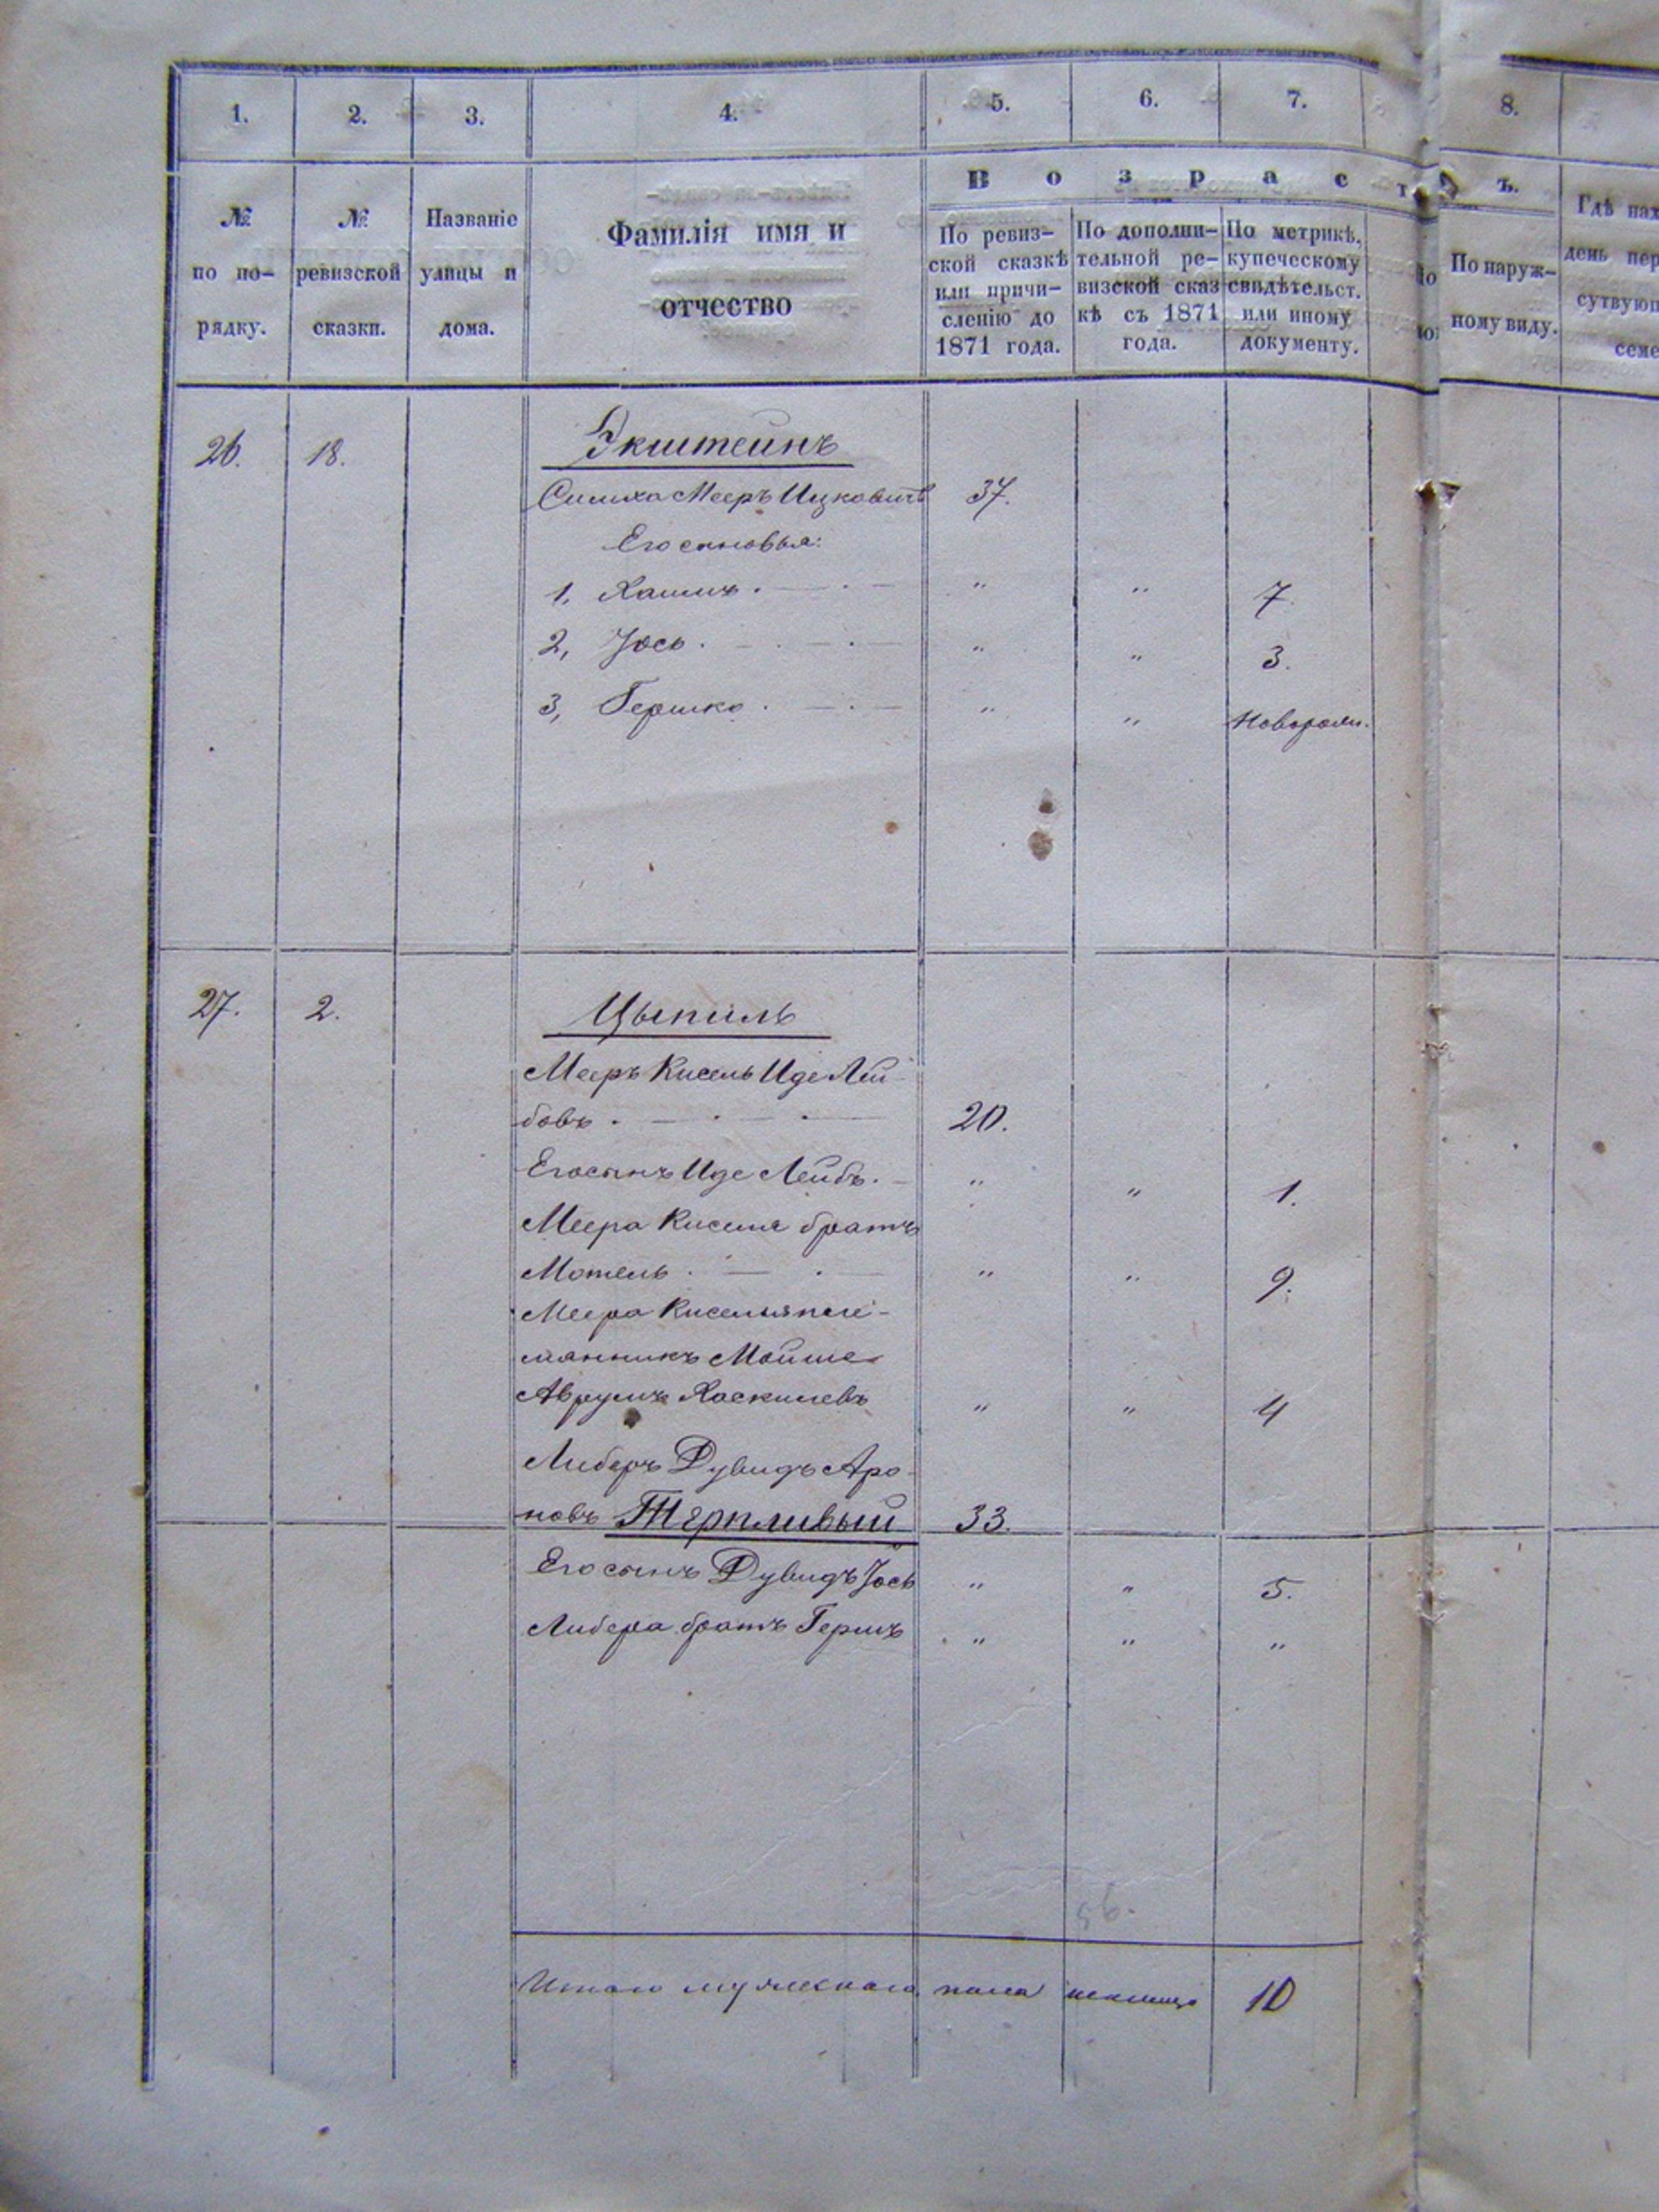 1. 2. 3. 4. 5. 6. 7. 8.
В о з р а с т ъ.
№ по по-
рядку.
№ ревизской
сказки.
Названіе
улицы и
дома.
Фамилія имя и
отчество
По ревиз-
ской сказкѣ
или причи-
сленію до
1871 года.
По дополни-
тельной ре-
визской сказ
кѣ съ 1871
года.
По метрикѣ,
купеческому
свидѣтельст.
или иному
документу.
По наруж-
ному виду.
Гдѣ нах
день пер
сутвующ
семе
26. 18. Экштейнъ
Симха Мееръ Ицковичъ 37.
Его сыновья:
1, Хаимъ . — . — " " 7.
2, Іось . — . — . — " " 3.
3, Гершко . — . — " "Новорожд.
27. 2. Цыпиль
Мееръ Кисель Иде Лей-
бовъ . — . — . — 20.
Его сынъ Иде Лейбъ. — " " 1.
Меера Киселя братъ
Мотель . — . — " " 9.
Меера Киселя пле-
мянникъ Мойше
Аврумъ Хаскилевъ " " 4
Либеръ Дувидъ Аро-
новъ Терпливый 33.
Его сынъ Дувидъ Іось " " 5.
Либера братъ Гершъ " " "
56.
Итого мужескаго пола 10